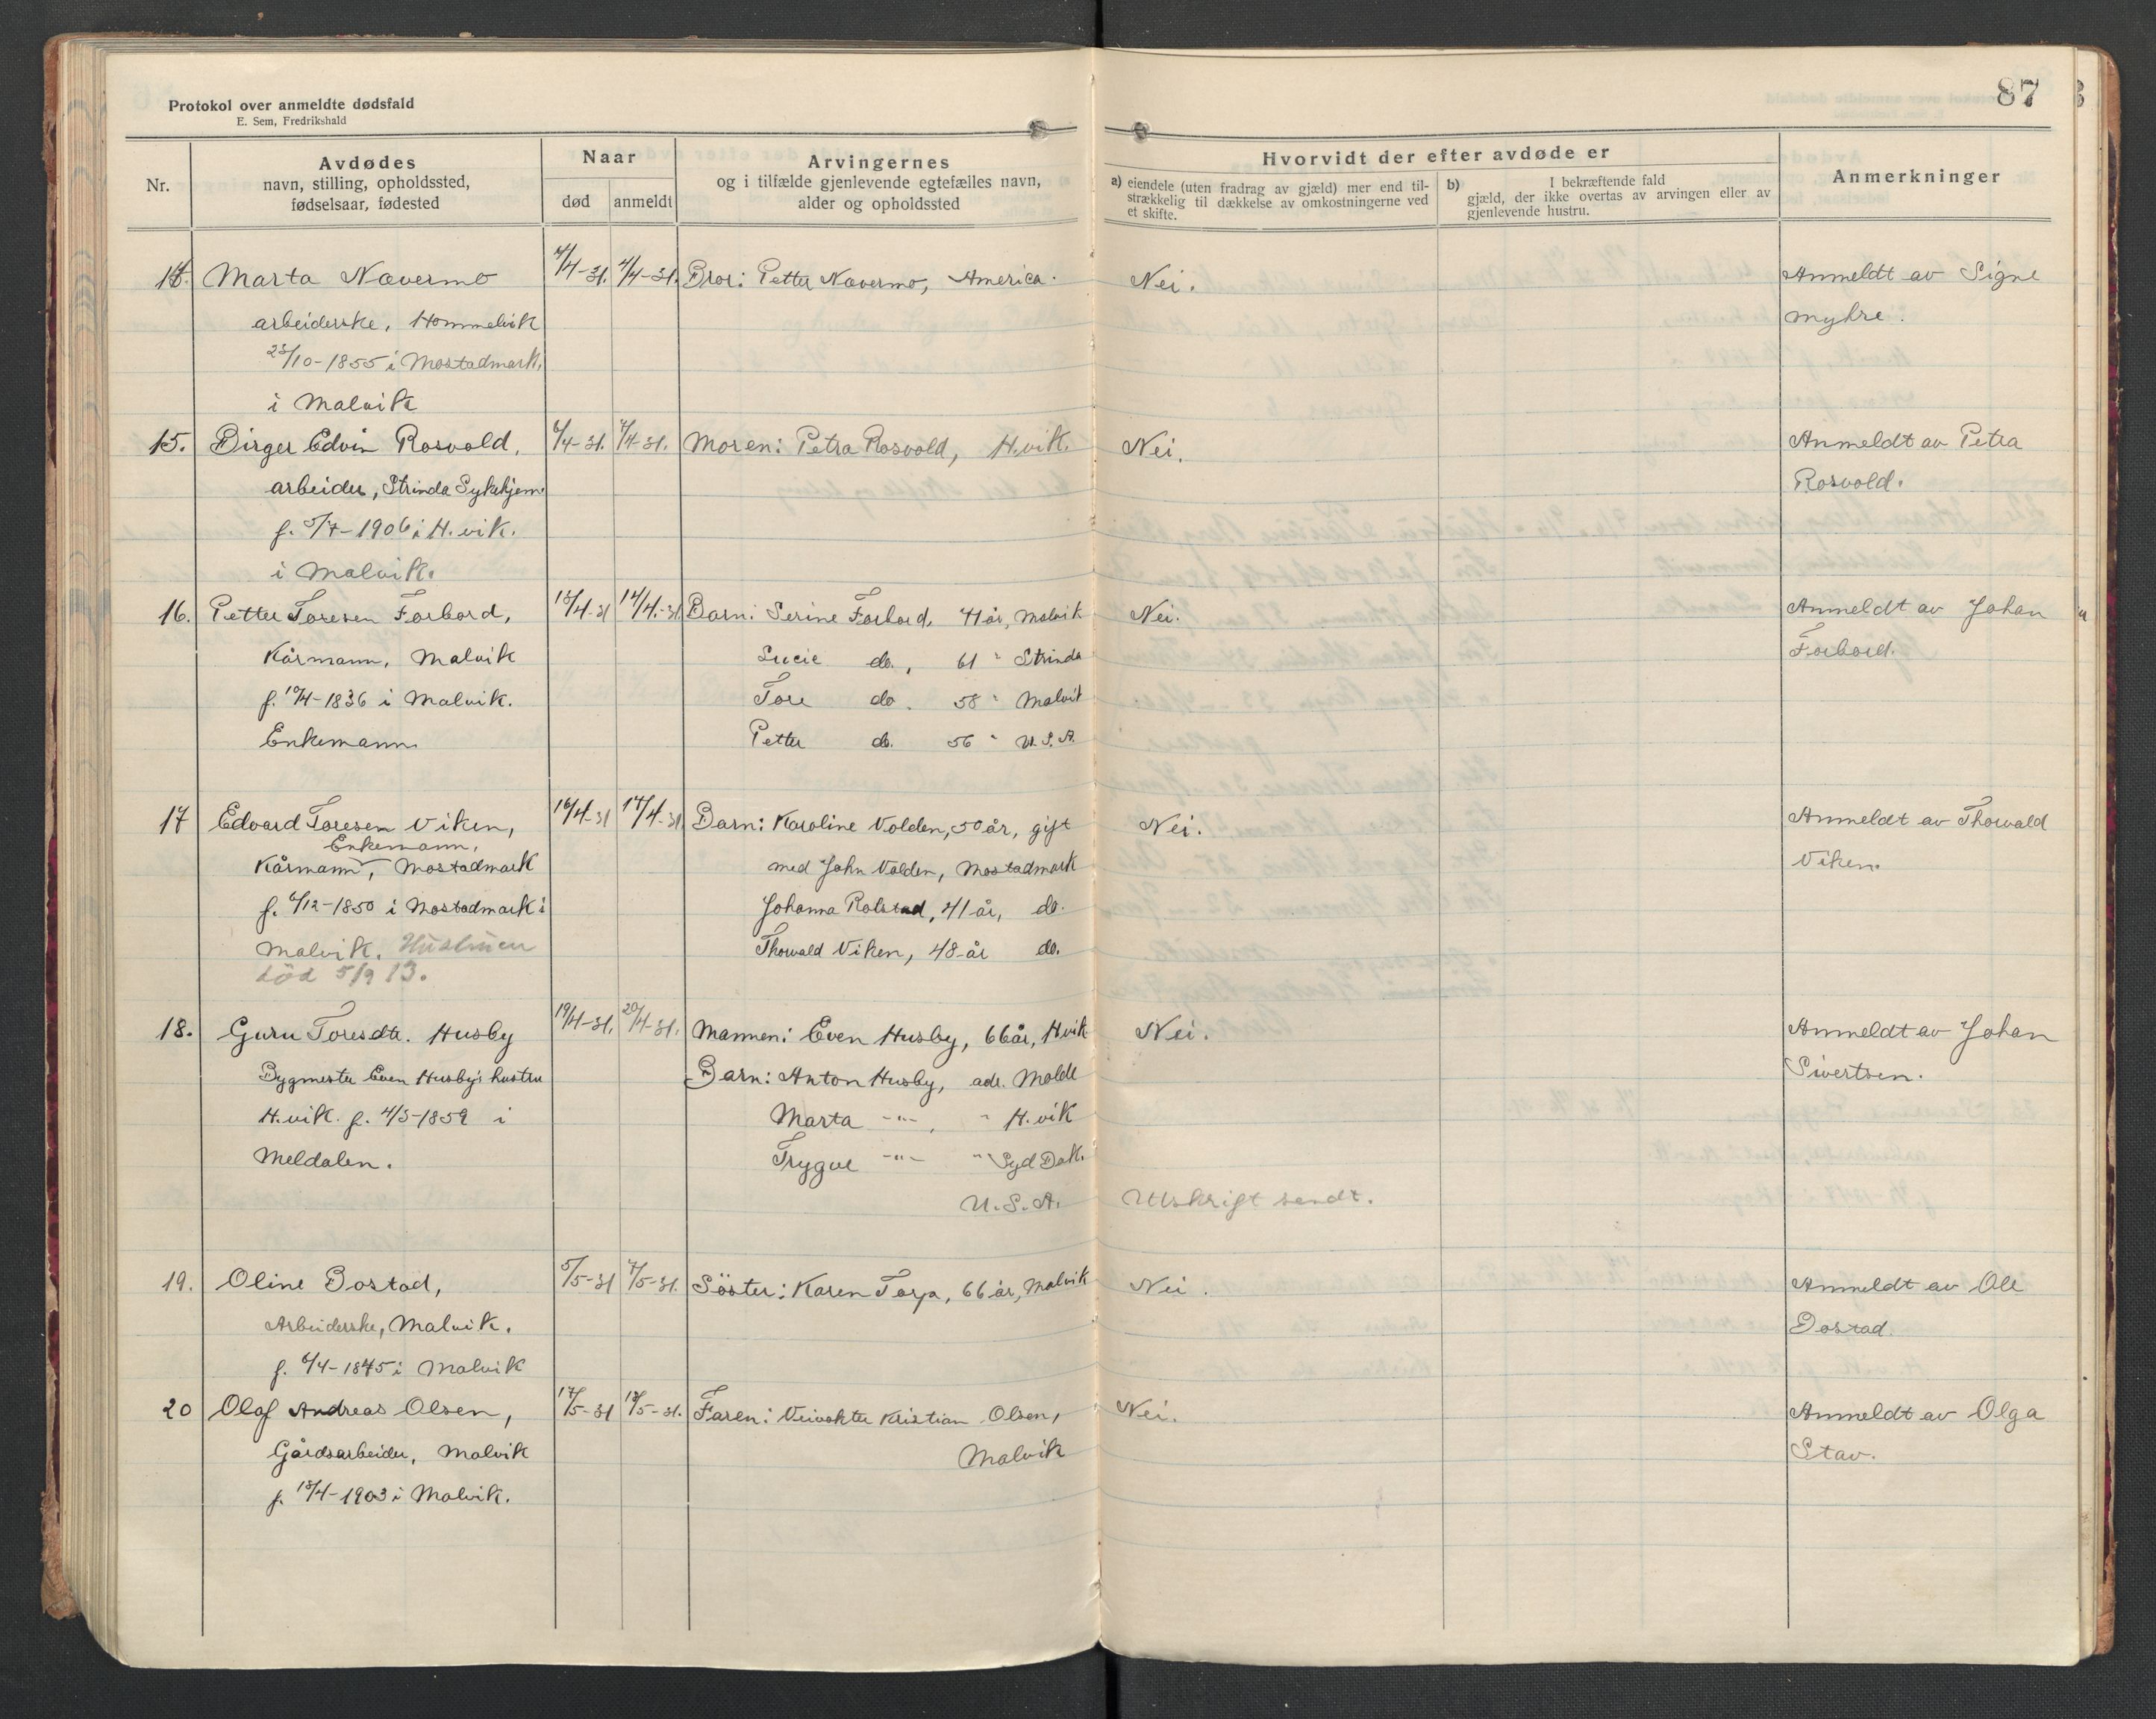 87
Protokol over anmeldte dødsfald
E. Sem, Fredrikshald
Nr.
Avdødes
navn, stilling, opholdssted,
fødselsaar, fødested
Naar
død
anmeldt
Arvingernes
og i tilfælde gjenlevende egtefælles navn,
alder og opholdssted
Hvorvidt der efter avdøde er
a) eiendele (uten fradrag av gjæld) mer end til-
strækkelig til dækkelse av omkostningerne ved
et skifte.
b) I bekræftende fald
gjæld, der ikke overtas av arvingen eller av
gjenlevende hustru.
Anmerkninger
14. Marta Nævermo 4/4-31. 4/4-31. Bror: Petter Nævermo, America. Nei. Anmeldt av Signe
arbeiderske, Hommelvik Myhre.
/10-1855 i Mostadmark,
i Malvik
15. Birger Edvin Rosvold, 6/4-31. 7/4-31. Moren: Petra Rosvold, H.vik. Nei. Anmeldt av Petra
arbeider, Strinda Sykehjem Rosvold.
f. 5/7-1906 i H.vik.
i Malvik.
16. Petter Toresen Forbord, 13/4-31 14/4.-31. Barn: Serine Forbord, 71 år, Malvik Nei. Anmeldt av Johan
Kårmann, Malvik Lucie do., 61 " Strinda Forbord.
f. 10/4-1836 i Malvik. Tore do. 58 " Malvik
Enkemann. Petter do. 56 " U.S.A.
17 Edvard Toresen Viken, 16/4-31 17/4-31. Barn: Karoline Volden, 50 år, gift Nei. Anmeldt av Thorvald
Enkemann,
Kårmann, Mostadmark med John Volden, Mostadmark Viken.
f. 6/12-1850 i Mostadmark i Johanna Rolstad, 41 år, do.
Malvik. Hustruen Thorvald Viken, 48 år do.
død 5/9 13.
18. Guru Toresdtr. Husby 19/4-31. 20/4-31. Mannen: Even Husby, 66 år, H.vik Nei. Anmeldt av Johan
Bygmester Even Husby's hustru Barn: Anton Husby, adr. Molde Sivertsen.
H.vik. f. 4/5-1859 i Marta -"-, " H.vik
Meldalen. Trygve -"- " Syd Dak.
U.S.A. Utskrift sendt.
19. Oline Bostad, 5/5-31 7/5-31. Söster: Karen Torp, 66 år, Malvik Nei. Anmeldt av Ole
Arbeiderske, Malvik. Bostad.
f. 6/4-1845 i Malvik
20 Olaf Andreas Olsen, 17/5-31 18/5-31. Faren: Veivokter Kristian Olsen, Nei. Anmeldt av Olga
Gårdsarbeider, Malvik Malvik Stav.
f. 18/4-1903 i Malvik.